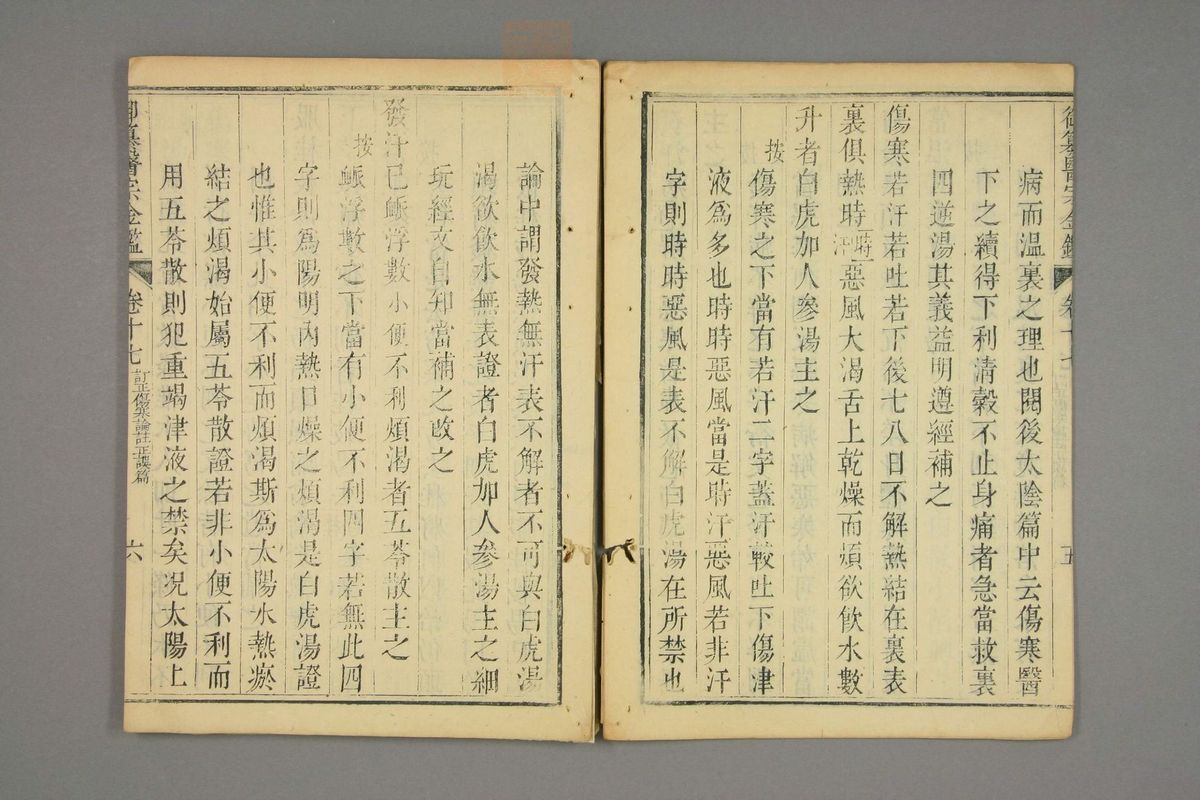 病而溫裏之理也閱後太陰篇中云傷寒醫
下之續得下利清穀不止身痛者急當救裏
四逆湯其義益明遵經補之
傷寒若汗若吐若下後七八日不解熱結在裏表
裏俱熱時時汗惡風大渴舌上乾燥而煩欲飲水數
升者白虎加人參湯主之
按傷寒之下當有若汗二字蓋汗較吐下傷津
液爲多也時時惡風當是時汗惡風若非汗
字則時時惡風是表不解白虎湯在所禁也
五
論中謂發熱無汗表不解者不可與白虎湯
渴欲飲水無表證者白虎加人參湯主之細
玩經文自知當補之改之
發汗已脈浮數小便不利煩渴者五苓散主之
按脈浮數之下當有小便不利四字若無此四
字則爲陽明內熱口燥之煩渴是白虎湯證
也惟其小便不利而煩渴斯爲太陽水熱瘀
結之煩渴始屬五苓散證若非小便不利而
用五苓散則犯重竭津液之禁矣況太陽上
御纂醫宗金鑑 卷十七 訂正傷寒論註正誤篇 六